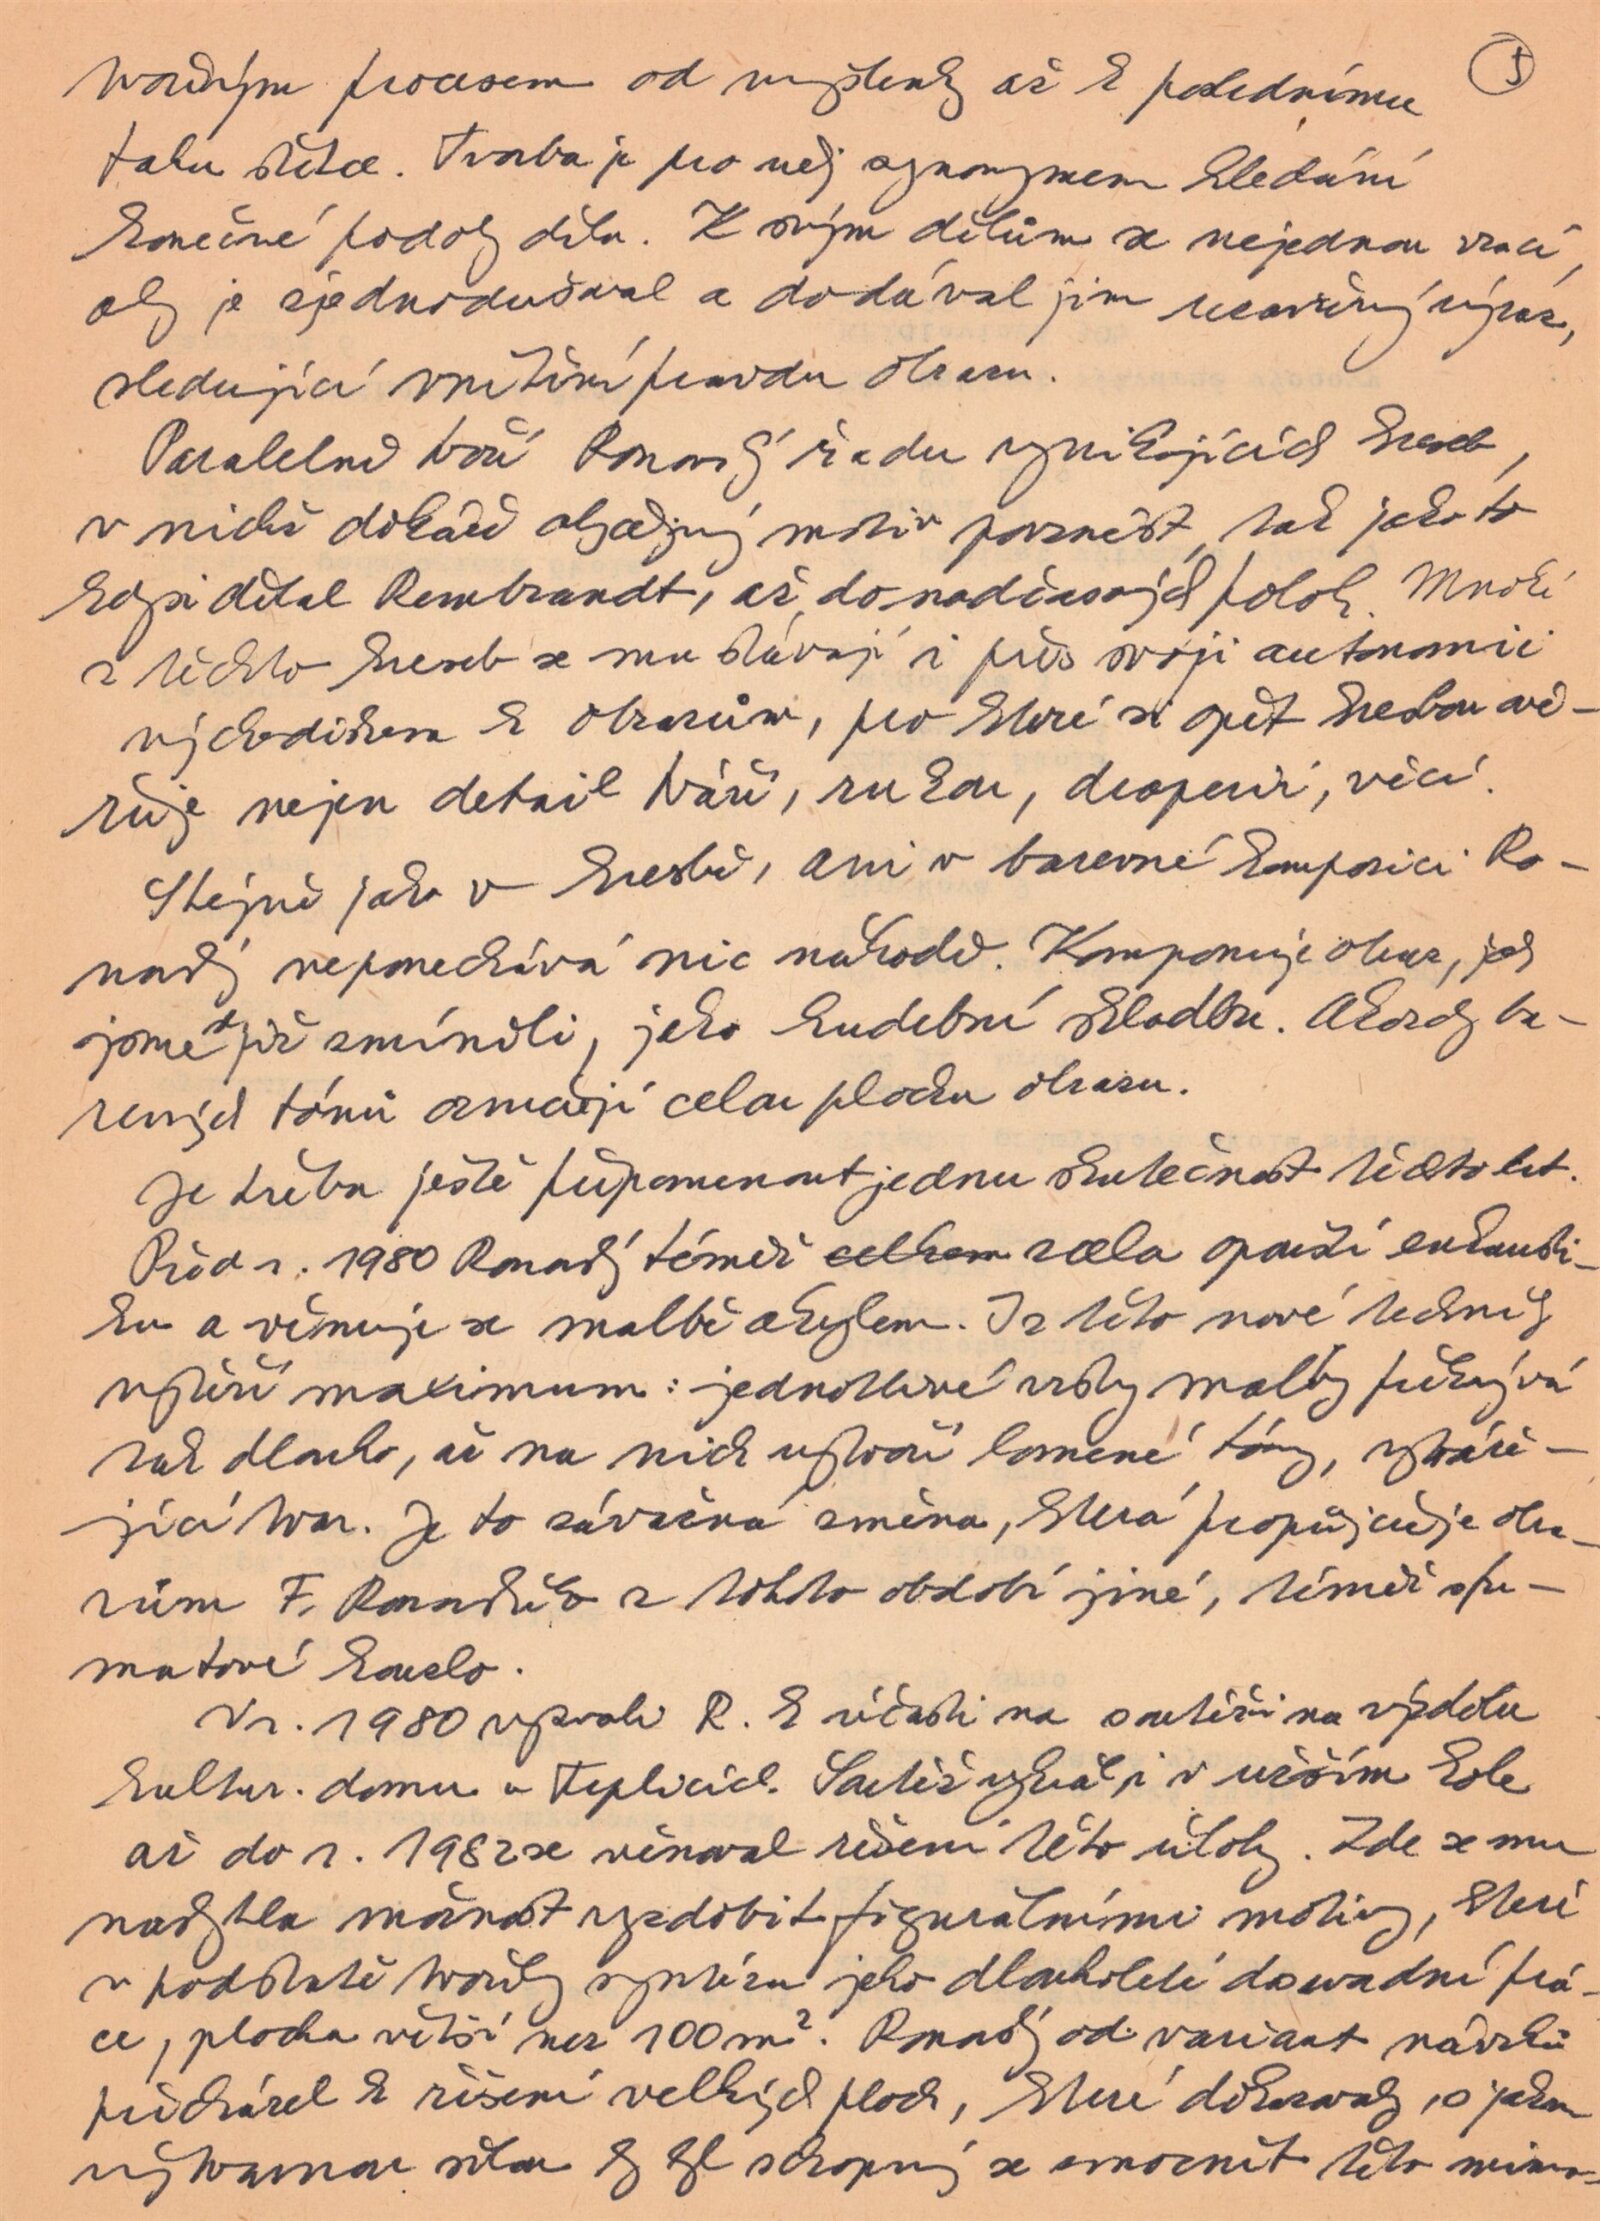 5
tvořivým procesem od myšlenky až k poslednímu
tahu štětce. Tvorba je pro něj synonymem hledání
konečné podoby díla. K svým dílům se nejednou vrací,
aby je zjednodušoval a dodával jim usavřený výraz,
sledující vnitřní pravdu obrazu.
Paralelně tvoří Ronovský řadu vynikajících kreseb,
v nichž dokáže obyčejný motiv povznést, tak jako to
kdysi dělal Rembrandt, až do nadčasových poloh. Mnohé
z těchto kreseb se mu stávají i přes svoji autonomii
východiskem k obrazům, pro které si opět kresbou ově-
řuje nejen detail tváří, rukou, draperií, věcí.
Stejně jako v kresbě, ani v barevné kompozici Ro-
novský neponechává nic náhodě. Komponuje obraz, jak
jsme již zmínili, jako hudební skladbu. Akordy ba-
revných tónů ozvučejí celou plochu obrazu.
Je třeba ještě připomenout jednu skutečnost těchto let.
Před r. 1980 Ronovský téměř celkem zcela opouští enkausti-
ku a věnuje se malbě akrylem. Iz této nové techniky
vytěží maximum: jednotlivé vrstvy malby překrývá
tak dlouho, až na nich vytvoří lomené tóny, vytváře-
jící tvar. Je to závažná změna, která propůjčuje obra-
zům F. Ronovského z tohoto období jiné, téměř sfu-
matové kouzlo.
V r. 1980 vyzvali R. k účasti na soutěži na výzdobu
kultur. domu v Teplicích. Soutěž vyhrál i v užším kole
až do r. 1982 se věnoval řešení této úlohy. Zde se mu
naskytla možnost vyzdobit figurálními motivy, které
v podstatě tvořily syntézu jeho dlouholeté dosavadní prá-
ce, plocha větší než 100 m². Ronovský od variant návrhů
přicházel k řešení velkých ploch, které dokazovaly, s jakou
výtvarnou silou by byl schopný se zmocnit této mimo-